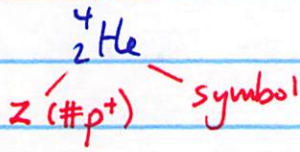 ⁴₂He
Z (#p⁺)
symbol